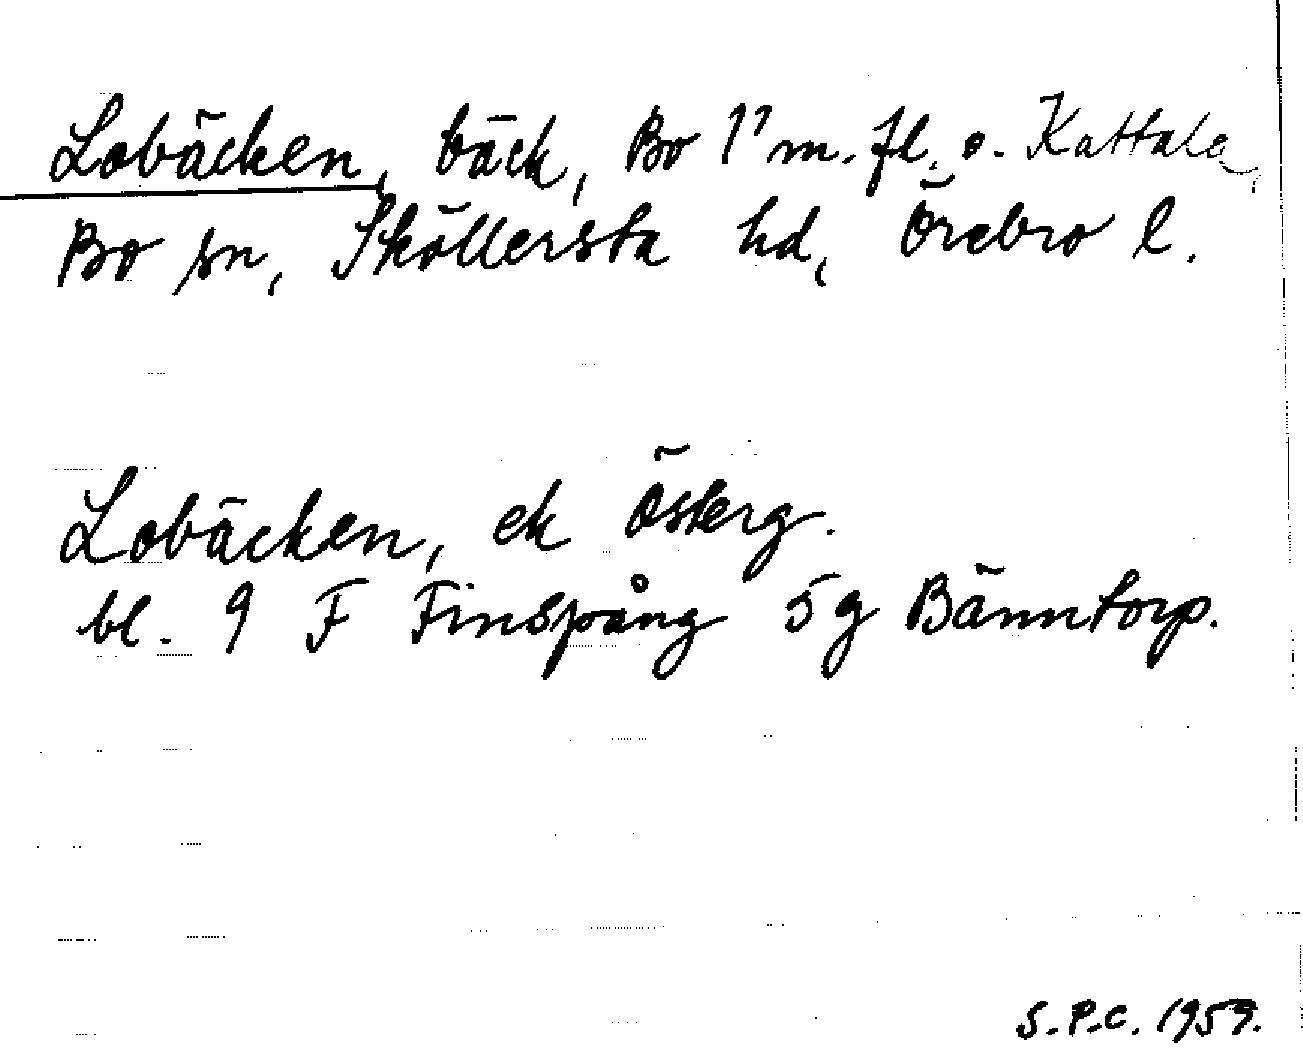 Lobäcken, bäck, Bo 1¹ m. fl. o. Kattala,
Bo sn, Sköllersta hd, Örebro l.
Lobäcken, ek Österg.
bl. 9 F Finspång 5 g Bänntorp.
S.P.C. 1959.